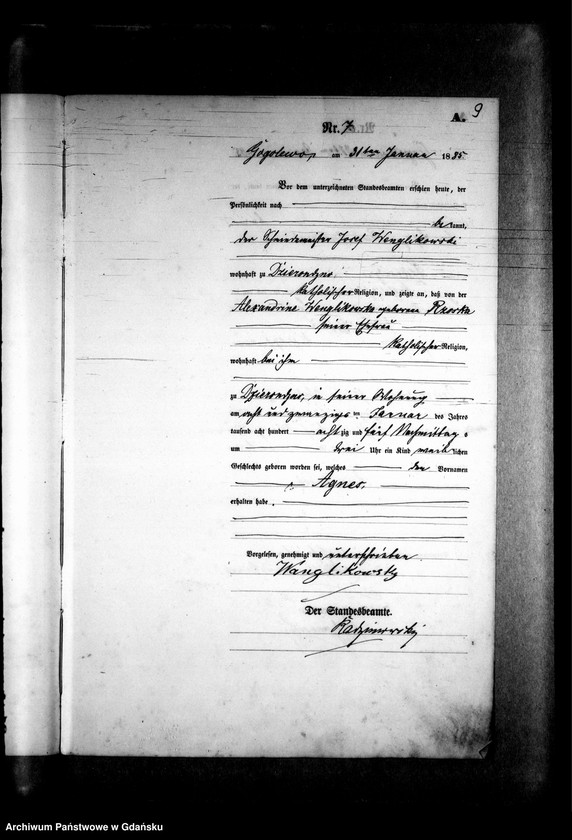 9
A.
Nr. 7
Gogolewo, am 31ten Januar 1885
Vor dem unterzeichneten Standesbeamten erschien heute, der
Persönlichkeit nach
bekannt,
der Schmiedemeister Josef Wenglikowski
wohnhaft zu Dzierondzno
katholischer Religion, und zeigte an, daß von der
Alexandrine Wenglikowska geborenen
seiner Ehefrau
katholischer Religion,
wohnhaft bei ihm
zu Dzierondzno, in seiner Wohnung
am acht und zwanzigsten Januar des Jahres
tausend acht hundert achtzig und fünf Nachmittag s
um drei Uhr ein Kind weiblichen
Geschlechts geboren worden sei, welches den Vornamen
Agnes.
erhalten habe.
Vorgelesen, genehmigt und unterschrieben
Wenglikowsky
Der Standesbeamte.
Archiwum Państwowe w Gdańsku